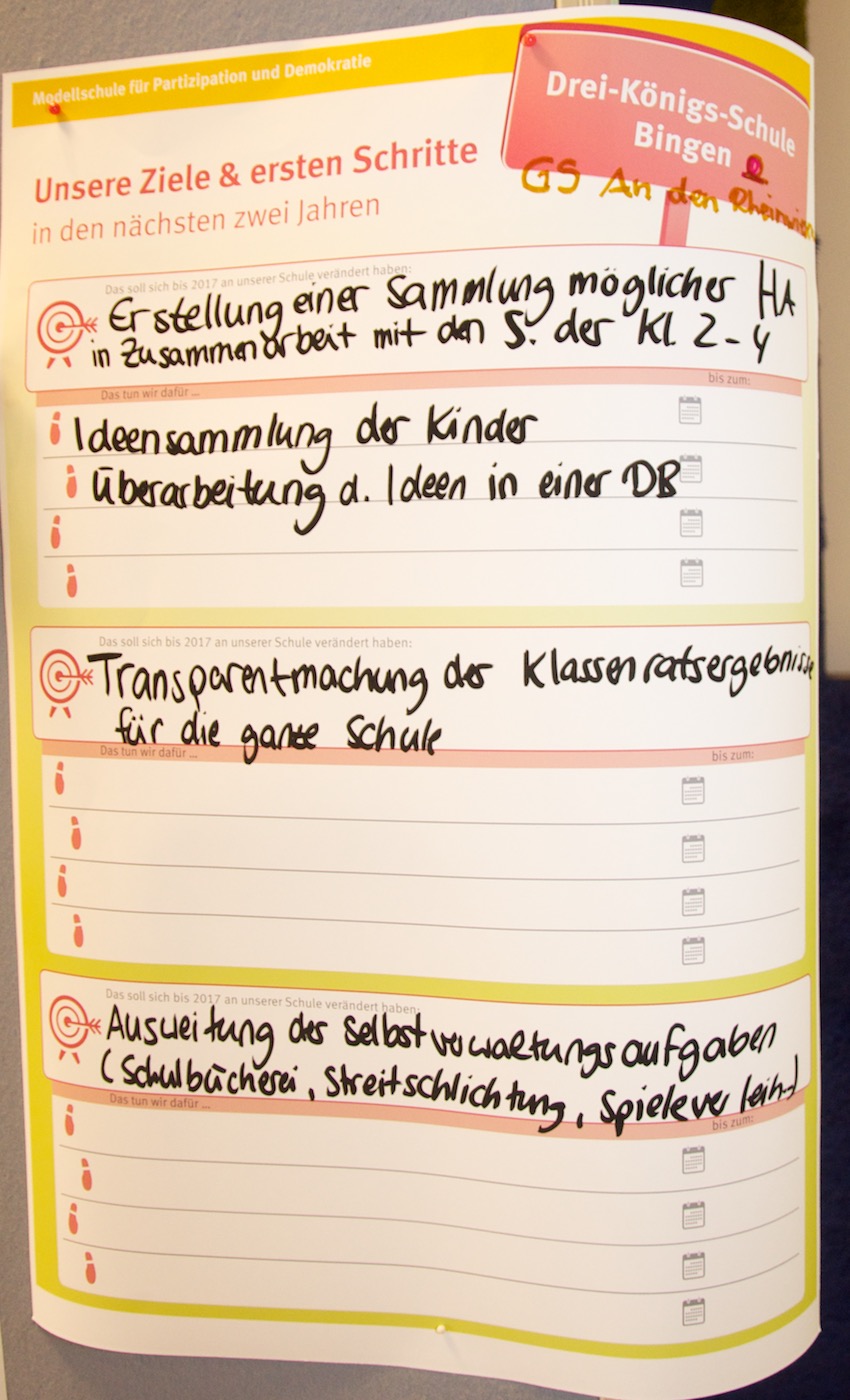 Modellschule für Partizipation und Demokratie
Drei-Königs-Schule
Bingen
GS An den
Unsere Ziele & ersten Schritte
in den nächsten zwei Jahren
Das soll sich bis 2017 an unserer Schule verändert haben:
Erstellung einer Sammlung möglicher HA
in Zusammenarbeit mit den S. der Kl 2-4
Das tun wir dafür ...
bis zum:
Ideensammlung der Kinder
Überarbeitung d. Ideen in einer DB
Das soll sich bis 2017 an unserer Schule verändert haben:
Transparentmachung der Klassenratsergebnisse
für die ganze Schule
Das tun wir dafür ...
bis zum:
Das soll sich bis 2017 an unserer Schule verändert haben:
Ausweitung der Selbstverwaltungsaufgaben
(Schulbücherei, Streitschlichtung, Spieleverleih)
Das tun wir dafür ...
bis zum: